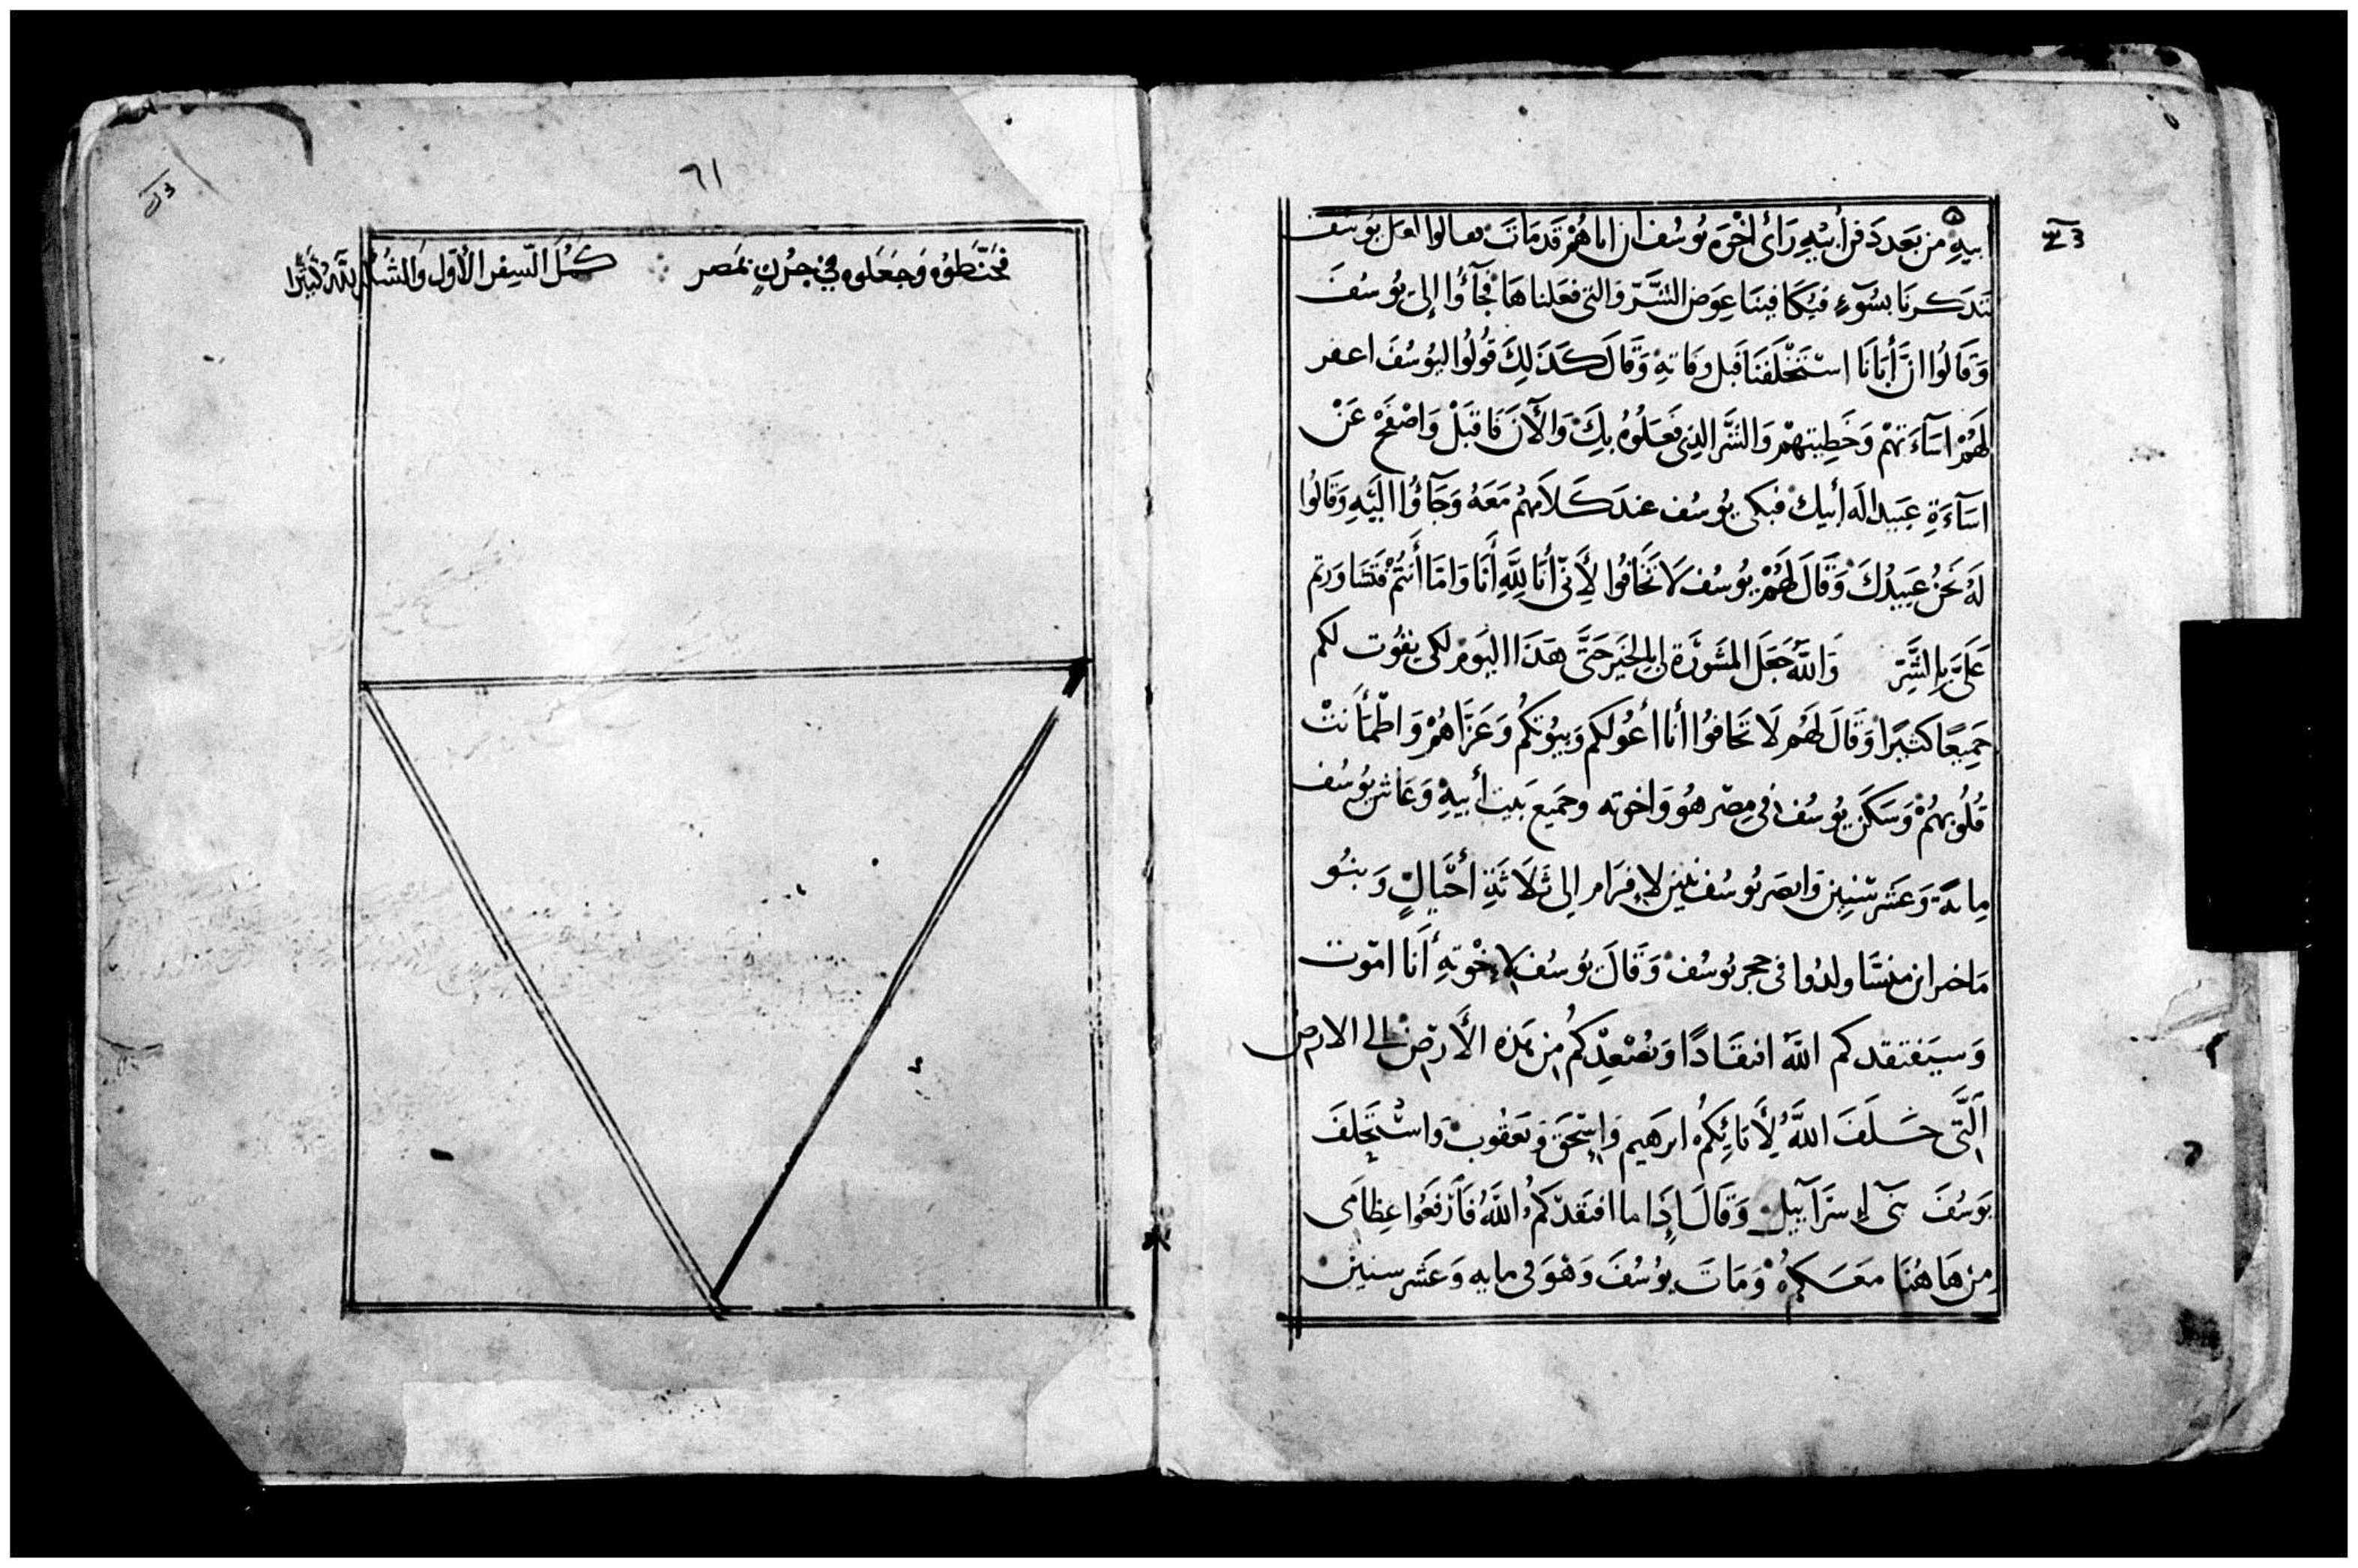 ابيه من بعد دفن أبيه رأى اخوه يوسف ان اباهم قد مات فقالوا لعل يوسف
تذكرنا بسوء فيكافينا عوض الشر والتى فعلناها فجآؤا إلى يوسف
وقالوا ان أبانا استخلفنا قبل وفاته وقال كذلك قولوا ليوسف اغفر
لهم اسآءتهم وخطيتهم والشر الذى فعلوه بك والآن فاقبل واصفح عن
اسآءة عبيد اله أبيك فبكى يوسف عند كلامهم معه وجآؤا اليه وقالوا
له نحن عبيدك وقال لهم يوسف لا تخافوا لأنى أنا لله أنا واما أنتم فتشاورتم
على بالشر والله جعل المشورة لى للخير حتى هذا اليوم لكى يقوت لكم
جميعا كثيرا وقال لهم لا تخافوا أنا أعولكم وبيوتكم وعزاهم واطمأنت
قلوبهم وسكن يوسف فى مصر هو واخوته وجميع بيت أبيه وعاش يوسف
ماية وعشر سنين وابصر يوسف بنين لافرام إلى ثلاثة أجيال وبنو
ماخير ابن منسا ولدوا فى حجر يوسف وقال يوسف لإخوته أنا اموت
وسيفتقدكم الله افتقادا ويصعدكم من هذه الأرض إلى الارض
التى حلف الله لأبائكم ابرهيم وإسحق ويعقوب واستحلف
يوسف بنى إسرآييل وقال إذا ما افتقدكم الله فأرفعوا عظامى
من هاهنا معكم ومات يوسف وهو فى مايه وعشر سنين
٦١
فحنطوه وجعلوه في جرن بمصر كمل السفر الأول والشكر لله كثيرا